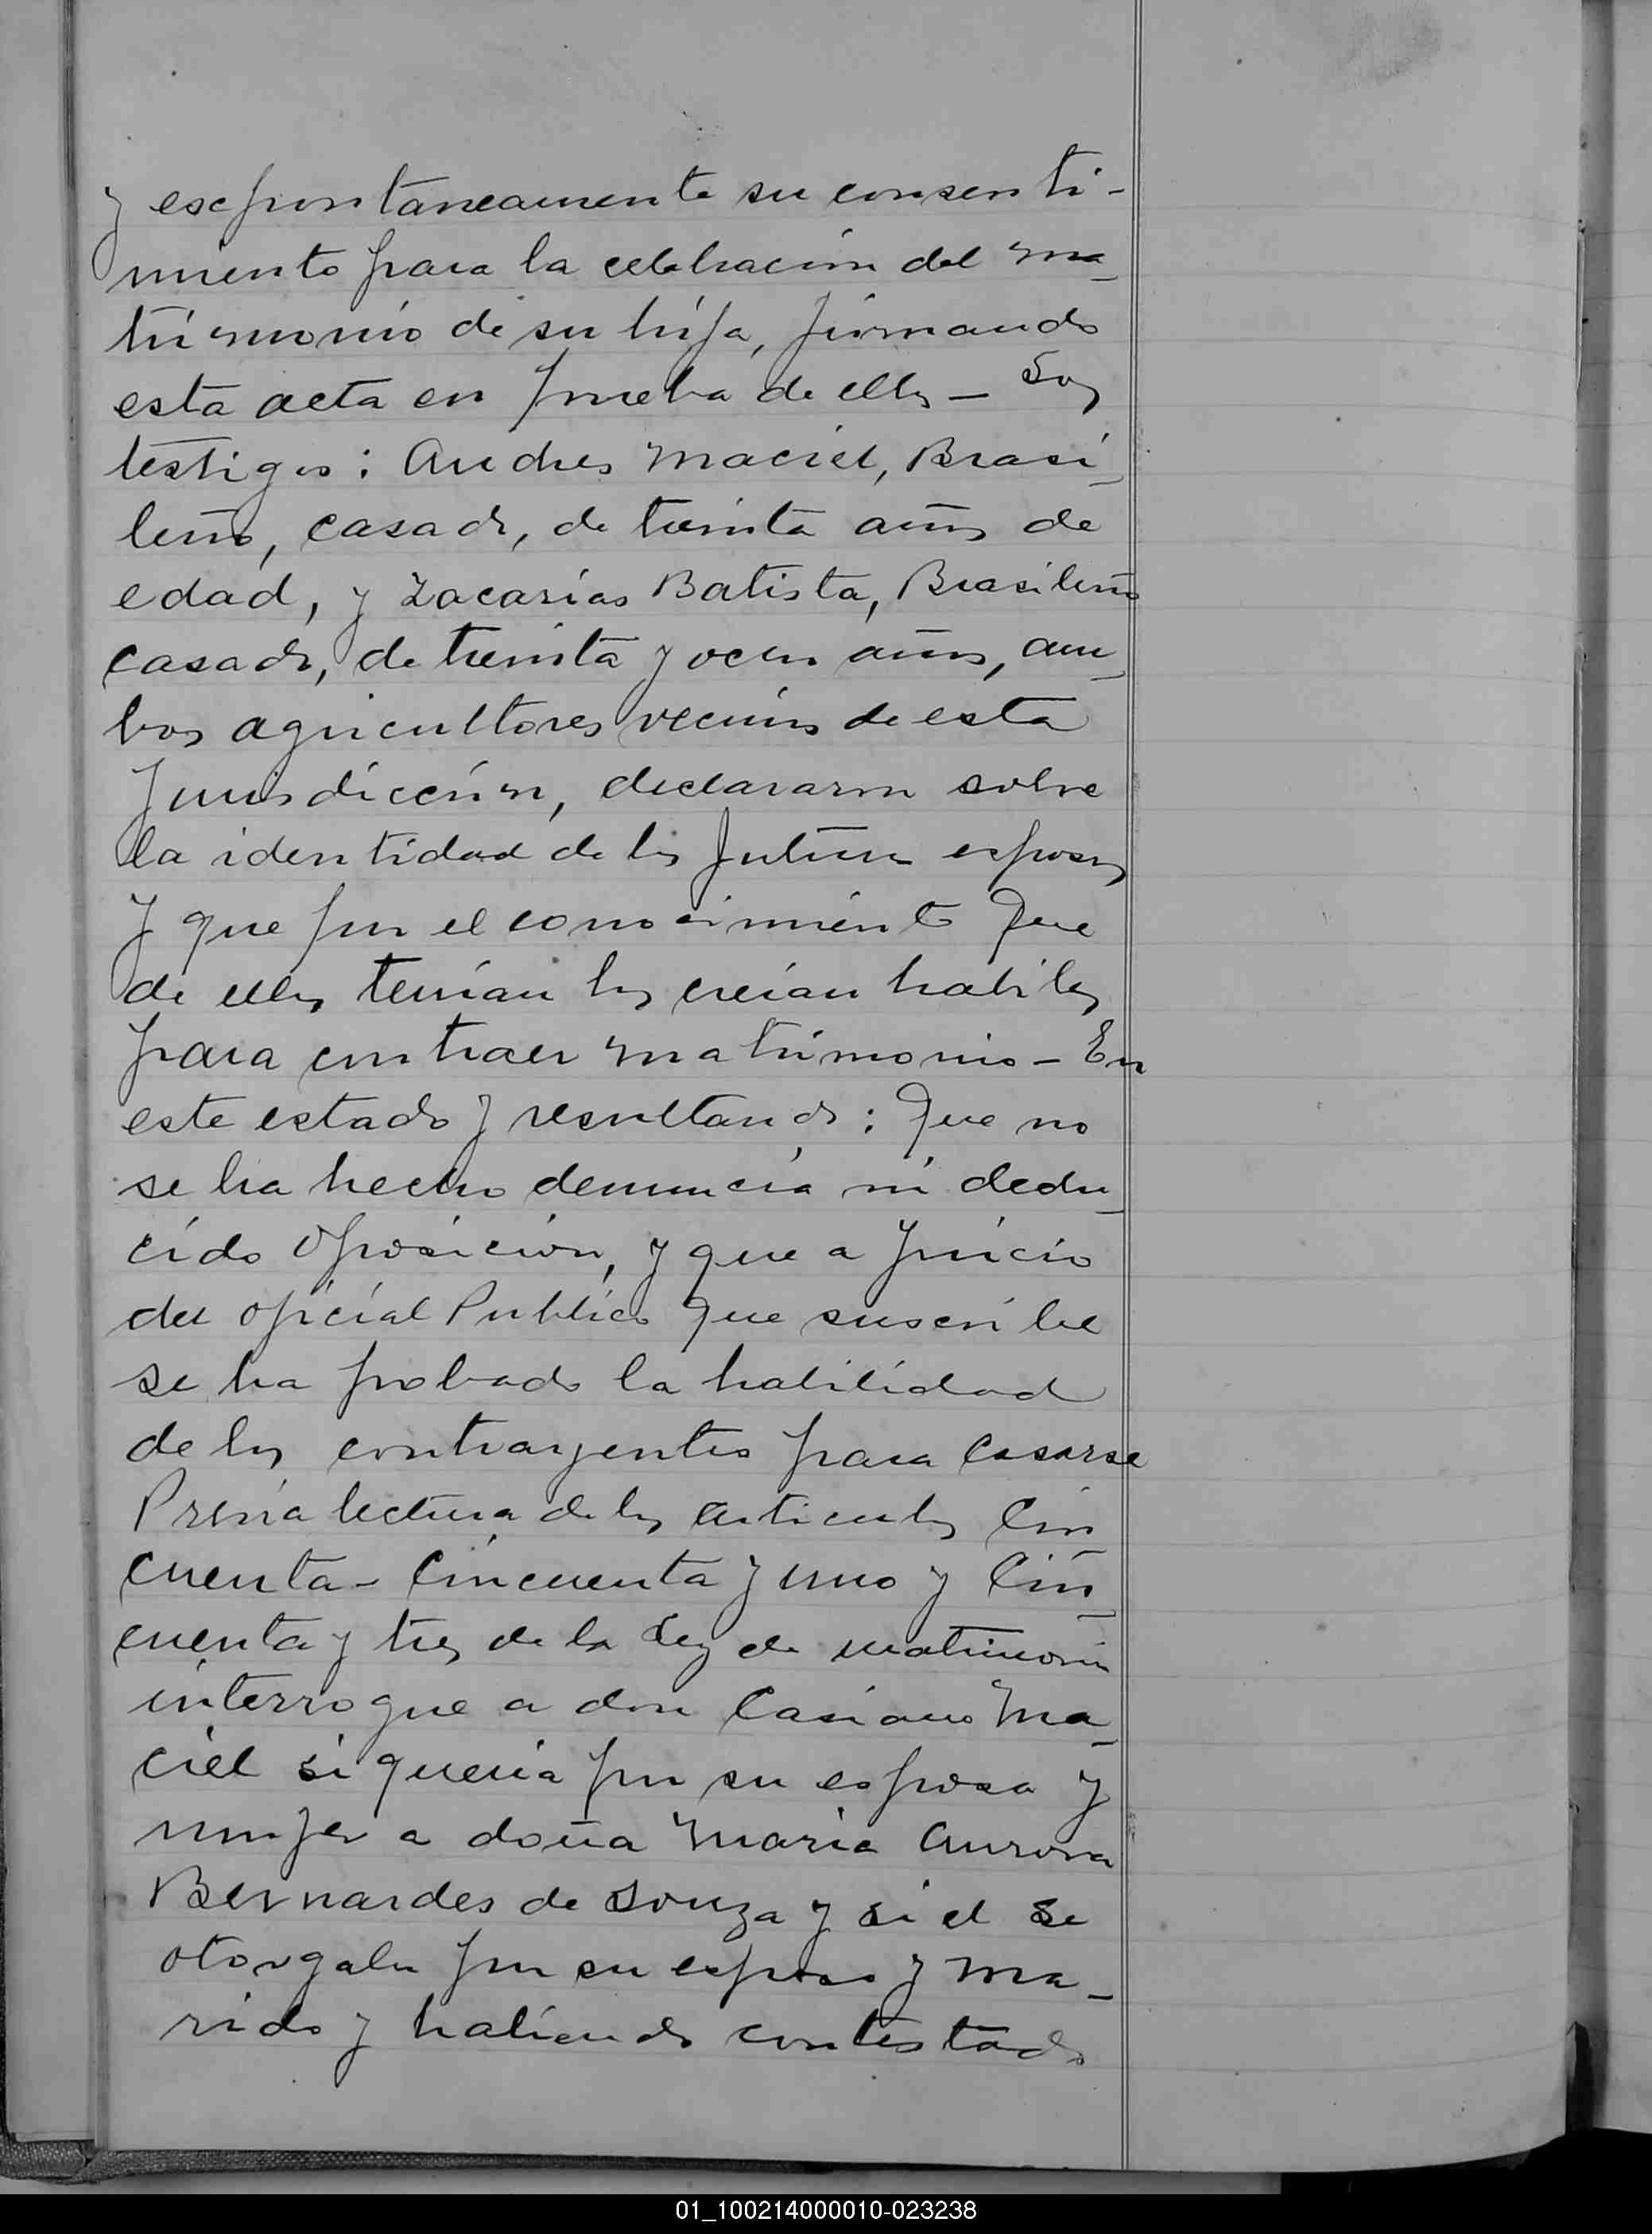 y escpontaneamente su consenti-
miento para la celebracion del ma_
trimonio de su hija, firmando
esta acta en prueba de ello - Los
testigos: Andres Maciel, Brasi_
leño, casado, de treinta años de
edad, y Zacarias Batista, Brasileño
casado, de treinta y ocho años, am_
bos agricultores vecinos de esta
Jurisdiccion, declararon sobre
la identidad de los futuros esposos
y que por el conocimiento que
de ellos tenian los creian habiles
para contraer matrimonio - En
este estado y resultando: Que no
se ha hecho denuncia ni dedu_
cido oposicion, y que a juicio
del oficial Publico que suscribe
se ha probado la habilidad
de los contrayentes para casarse
Previa lectura de los articulos Cin_
cuenta - Cincuenta y uno y Cin_
cuenta y tres de la Ley de matrimonio
interrogue a don Casiano Ma_
ciel si queria por su esposa y
mujer a doña Maria Aurora
Bernardes de Souza y si el se
otorgaba por su esposo y ma_
rido y habiendo contestado
01_100214000010-023238